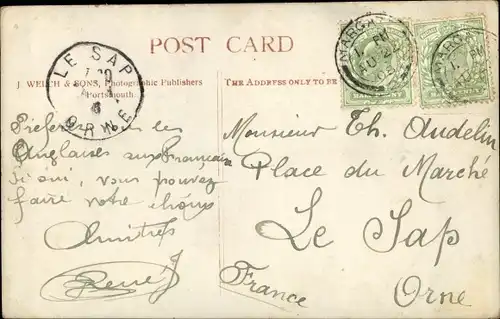 POST CARD
J. WELCH & SONS, Photographic Publishers
Portsmouth.
THE ADDRESS ONLY TO BE
LE SAP
ORNE
MARGATE
MARG
HALFPENNY
Préférez les
Anglaises aux Français
si oui, vous pouvez
faire votre choix
Amitiés
René
Monsieur Th. Audelin
Place du Marché
Le Sap
Orne
France